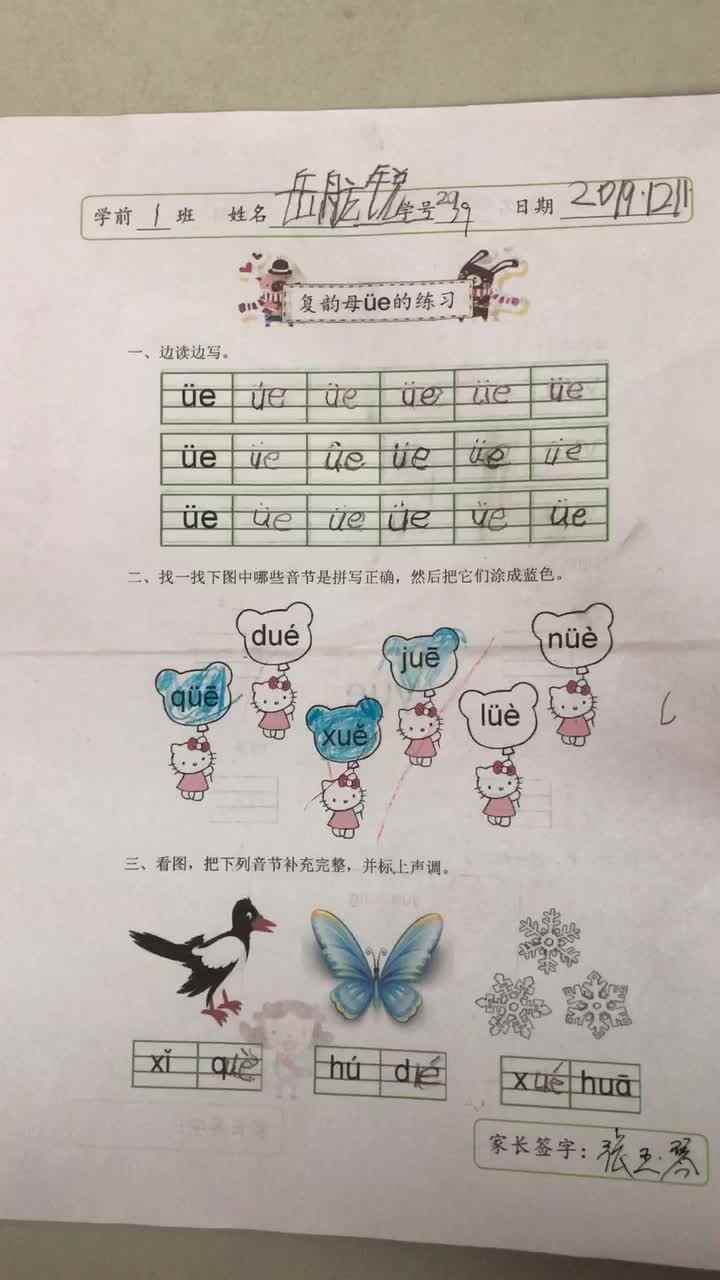 学前1班 姓名岳航锐学号2039 日期2019.12.11
复韵母üe的练习
一、边读边写。
üe üe üe üe üe üe
üe üe üe üe üe üe
üe üe üe üe üe üe
二、找一找下图中哪些音节是拼写正确，然后把它们涂成蓝色。
dué juē nüè
qüē xuě lüè
三、看图，把下列音节补充完整，并标上声调。
xǐ què hú dié xué huā
家长签字：张玉琴